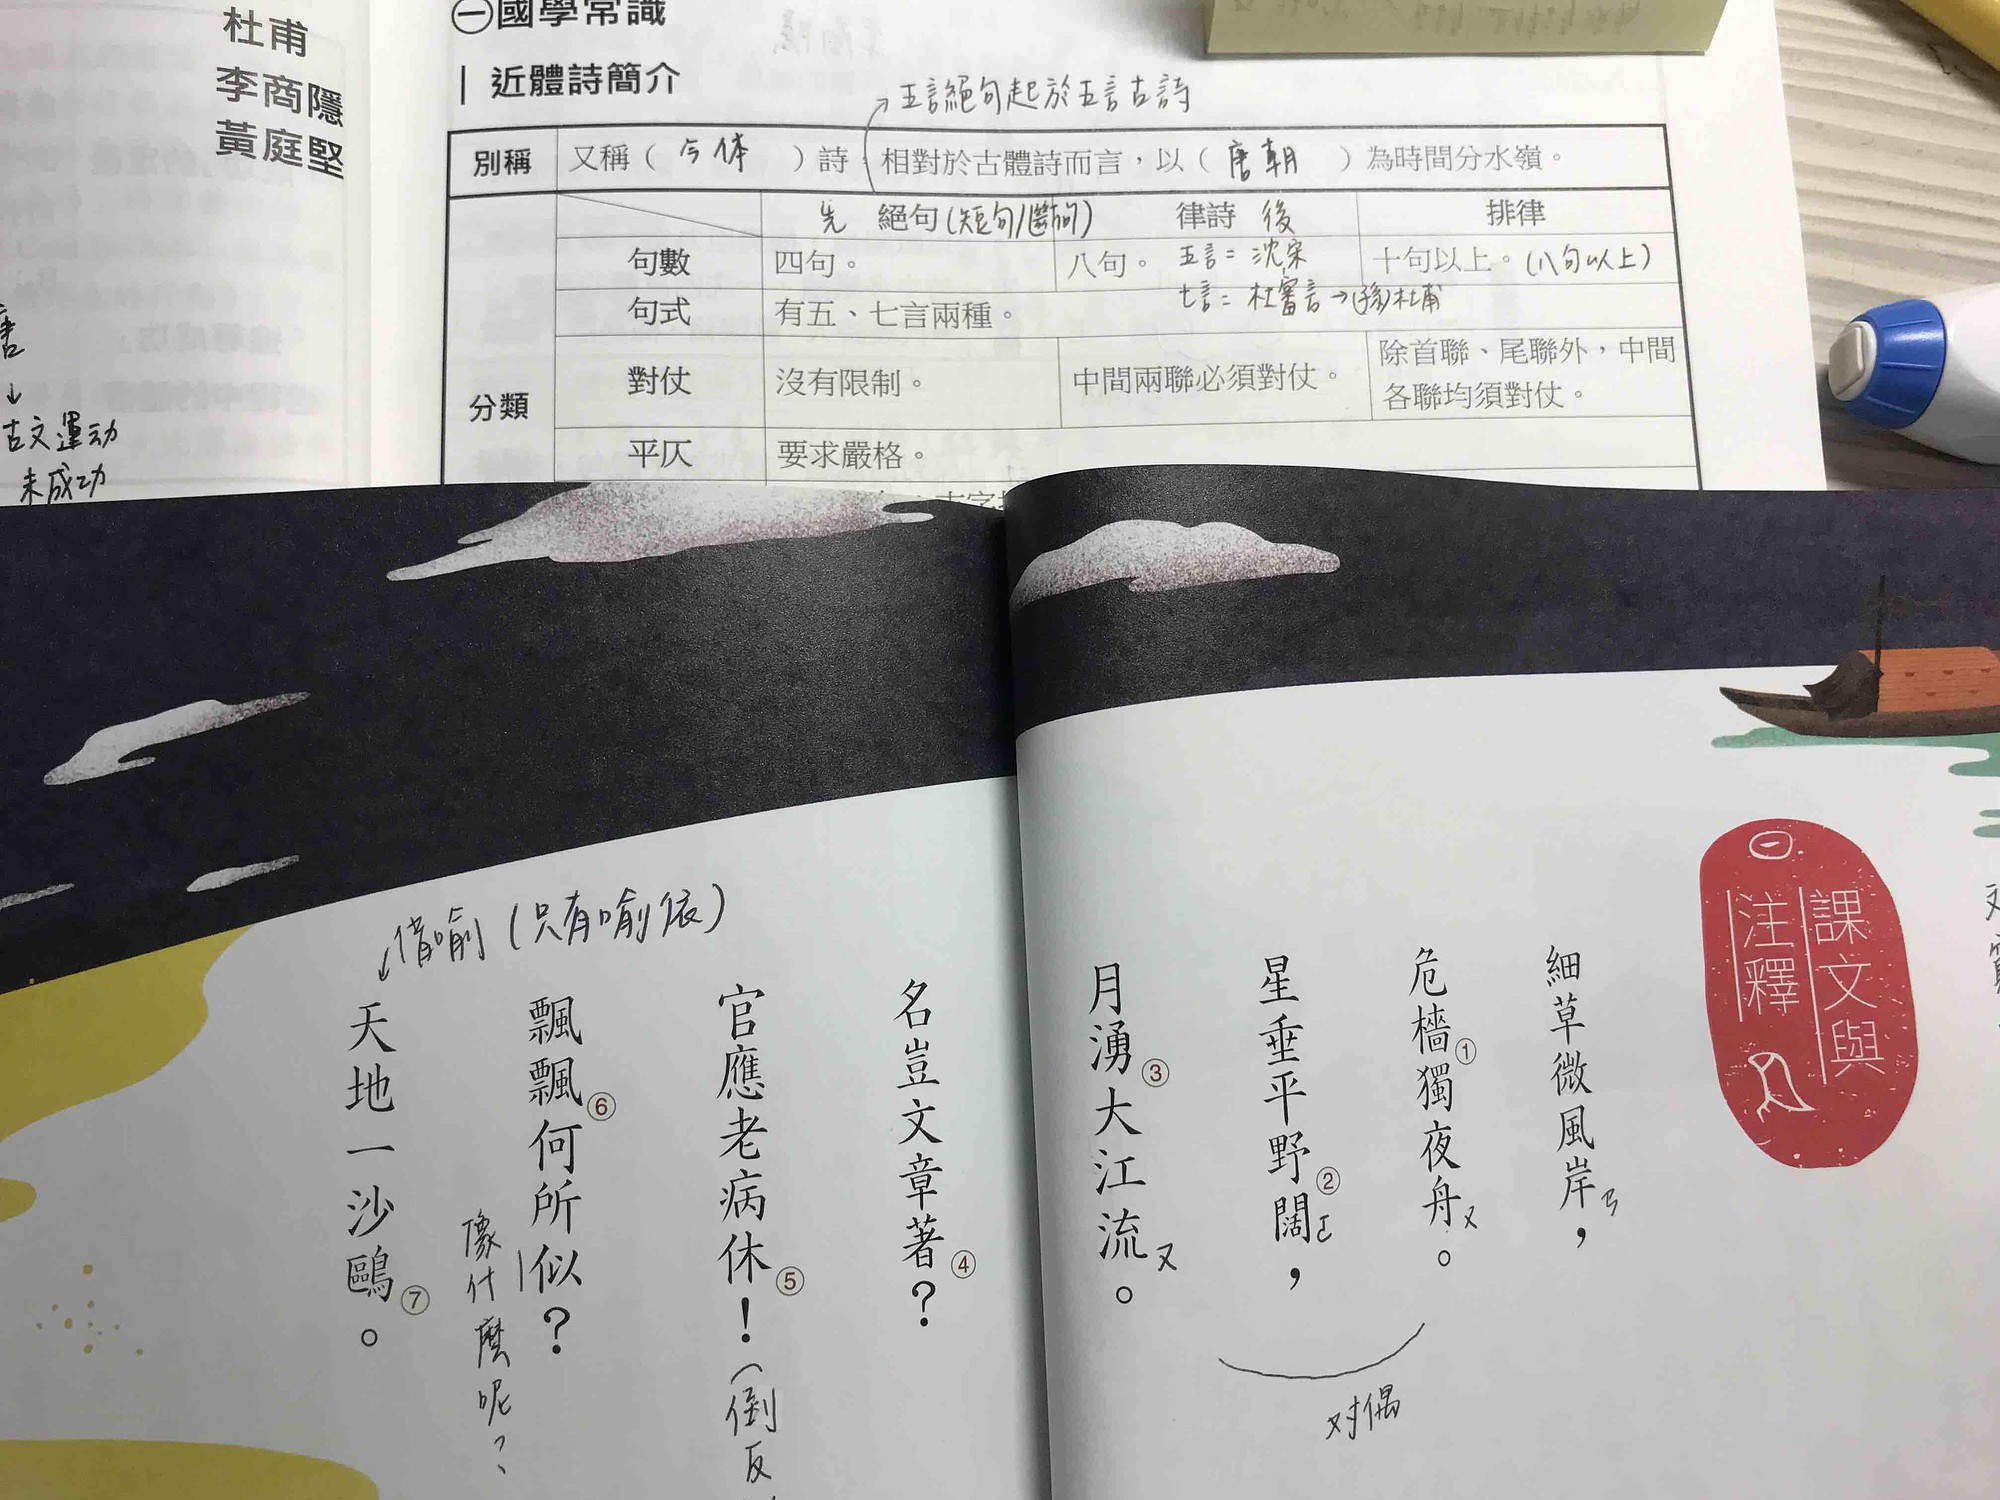 杜甫
李商隱
黃庭堅
㊀國學常識
近體詩簡介
五言絕句起於五言古詩
別稱 又稱（今体）詩，相對於古體詩而言，以（唐朝）為時間分水嶺。
先 絕句(短句/斷句) 律詩 後 排律
句數 四句。 八句。 五言=沈宋 十句以上。(八句以上)
句式 有五、七言兩種。 七言=杜審言→(孫)杜甫
分類
對仗 沒有限制。 中間兩聯必須對仗。 除首聯、尾聯外，中間
各聯均須對仗。
平仄 要求嚴格。
↓
古文運动
未成功
㊀
課文與
注釋
細草微風岸，ㄢ
危檣①獨夜舟。ㄡ
星垂平野闊②，ㄛ
月湧③大江流。ㄡ
对偶
名豈文章著④？
官應老病休⑤！(倒反
飄飄⑥何所似？
像什麼呢？
借喻(只有喻依)
天地一沙鷗⑦。